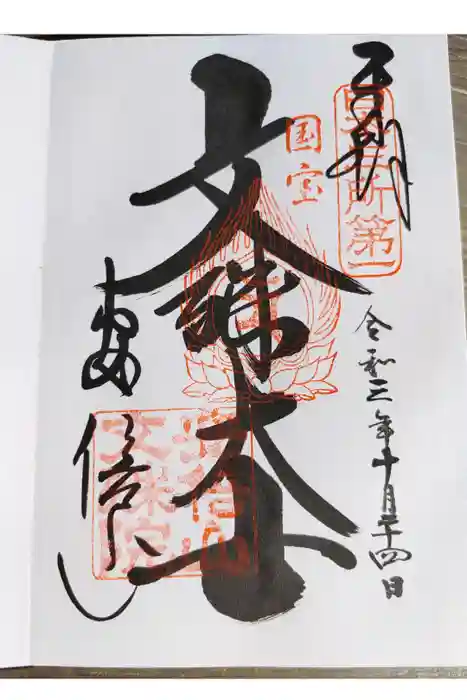 奉拝
日本三所第一
令和三年十月二十四日
国宝
文殊大士
安倍山
安倍山
文殊院